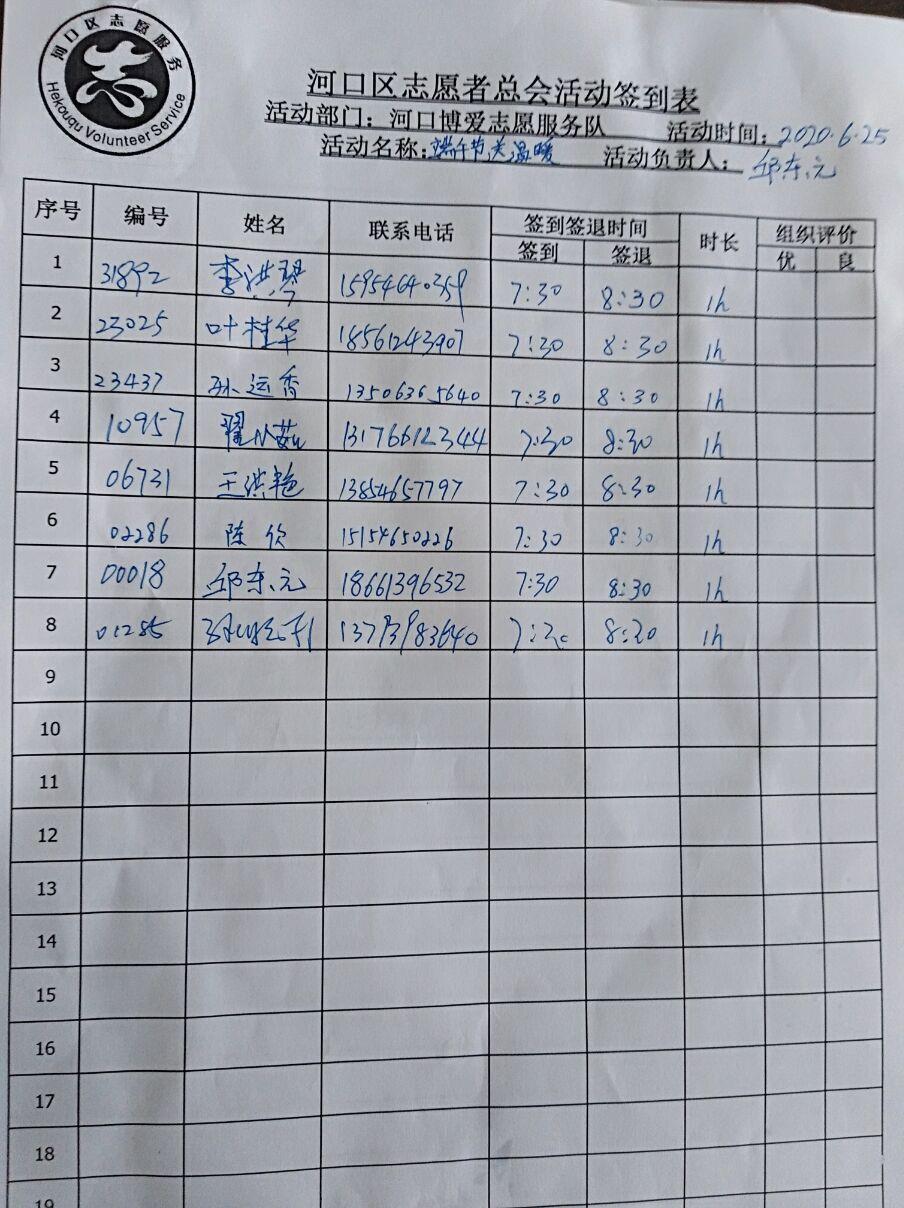 河口区志愿服务
Hekouqu Volunteer Service
河口区志愿者总会活动签到表
活动部门：河口博爱志愿服务队 活动时间：2020.6.25
活动名称：端午节送温暖 活动负责人：邱东元
序号 编号 姓名 联系电话 签到签退时间 时长 组织评价
签到 签退 优 良
1 31892 李洪琴 15954640359 7:30 8:30 1h
2 23025 叶桂华 18561243907 7:30 8:30 1h
3 23437 孙运香 13506365640 7:30 8:30 1h
4 10957 翟从茹 131766122344 7:30 8:30 1h
5 06731 王洪艳 13854657797 7:30 8:30 1h
6 02286 陈欣 15154650226 7:30 8:30 1h
7 00018 邱东元 18661396532 7:30 8:30 1h
8 01285 13713983640 7:30 8:30 1h
9
10
11
12
13
14
15
16
17
18
19